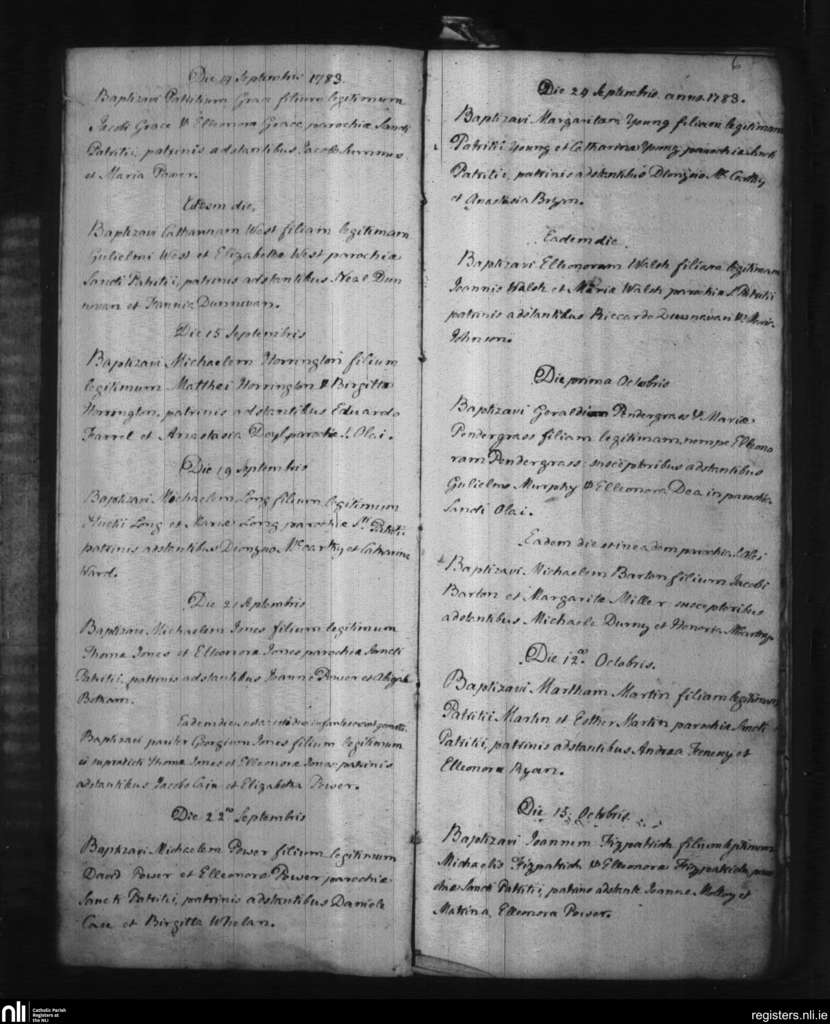 Die 14 Septembris 1783.
Baptizavi Patritium Grace filium legitimum
Jacobi Grace & Elleonora Grace parochiæ Sancti
Patritii, patrinis adstantibus Jacobo
et Maria Power.
Eadem die,
Baptizavi Catharinam West filiam legitimam
Gulielmi West et Elizabetha West parochiæ
Sancti Patritii, patrinis adstantibus Neal Dun
novan et Fannia Dunnovan.
Die 15 Septembris
Baptizavi Michaelem Horrington filium
legitimum Matthei Horrington & Birgitta
Horrington, patrinis adstantibus Eduardo
Farrel et Anastasia Doyl parochiæ S. Olai.
Die 19 Septembris
Baptizavi Michaelem Long filium legitimum
Long et Mariæ Long parochiæ Sti Patritii
patrinis adstantibus Dionysio Mccartky et Catharina
Ward.
Die 21 Septembris
Baptizavi Michaelem Jones filium legitimum
Thoma Jones et Elleonora Jones parochiæ Sancti
Patritii, patrinis adstantibus Joanne Power et
Botham.
Eadem die
Baptizavi pariter Georgium Jones filium legitimum
supradicti Thoma Jones et Elleonora Jones patrinis
adstantibus Jacobo Cain et Elizabetha Power.
Die 22do Septembris
Baptizavi Michaelem Power filium legitimum
David Power et Elleonora Power parochiæ
Sancti Patritii, patrinis adstantibus Daniele
et Birgitta Whelan.
6
Die 24 Septembris anno 1783.
Baptizavi Margaritam Young filiam legitimam
Patritii Young et Catharina Young parochiæ Sancti
Patritii, patrinis adstantibus Dionysio Mc Cartky
et Anastasia Bryan.
Eadem die
Baptizavi Elleonoram Walsh filiam legitimam
Joannis Walsh et Maria Walsh parochiæ Sti Patritii
patrinis adstantibus Riccardo Dunnavan & Maria
Johnson
Die prima Octobris
Baptizavi Pendergrass & Mariæ
Pendergrass filiam legitimam nempe Elleono
ram Pendergrass susceptoribus adstantibus
Gulielmo Murphy & Elleonora Dea in parochia
Sancti Olai.
Eadem die et in eadem parochia S. Olai
Baptizavi Michaelem Barton filium Jacobi
Barton et Margarita Miller susceptoribus
adstantibus Michaele Durny et Honoria
Die 12a Octobris.
Baptizavi Martham Martin filiam legitimam
Patritii Martin et Esther Martin parochiæ Sancti
Patritii, patrinis adstantibus Andrea et
Elleonora Ryan.
Die 15 Octobris
Baptizavi Joannem Fizpatrick filium legitimum
Michaelis Fizpatrick & Elleonora Fizpatrick paro
chiæ Sancti Patritii, patrino adstante Joanne et
Matrina Elleonora Power.
nli
Catholic Parish
Registers at
the NLI
registers.nli.ie